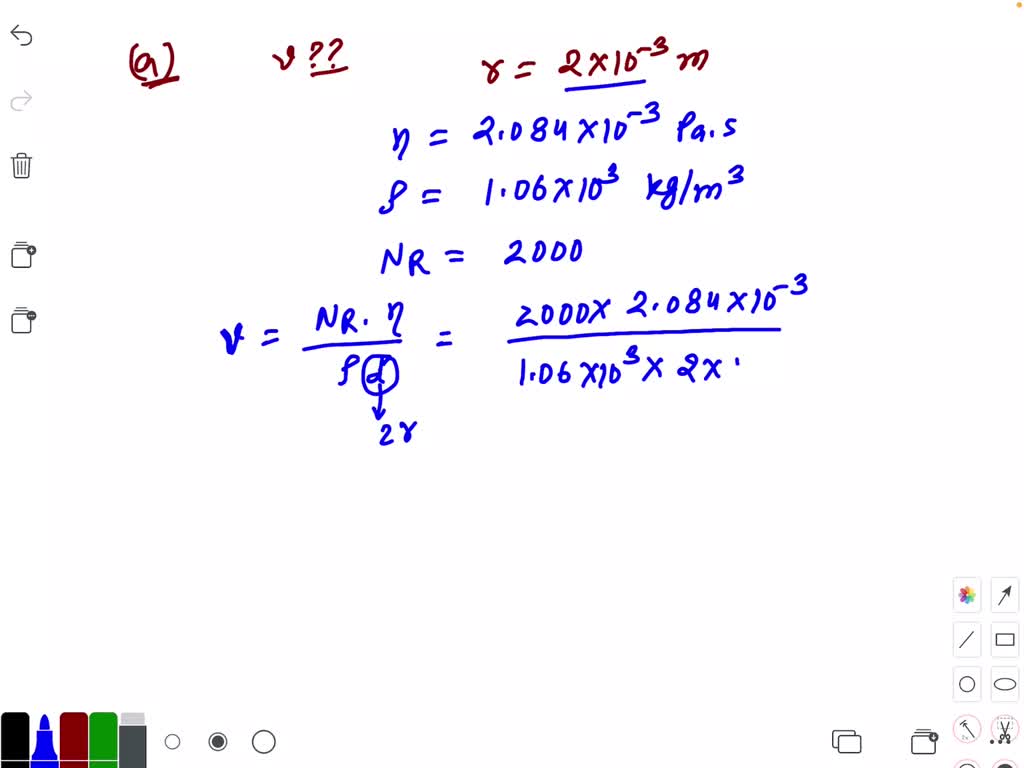 (a) v ?? r = 2×10⁻³ m
η = 2.084×10⁻³ Pa.s
ρ = 1.06×10³ kg/m³
NR = 2000
v = NR. η / ρ d = 2000× 2.084×10⁻³ / 1.06×10³ × 2× .
2r